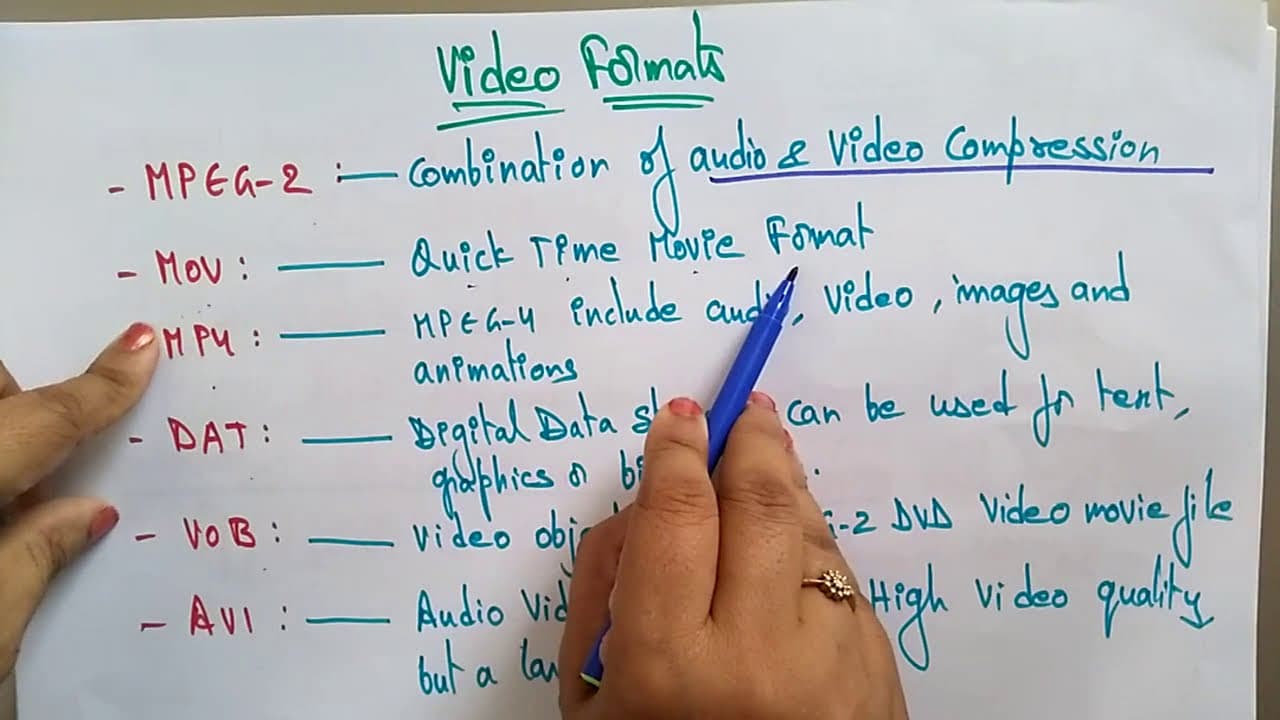 Video Formats
- MPEG-2 :— Combination of audio & Video Compression
- MOV : — Quick Time Movie Format
MP4 : — MPEG-4 include , Video, images and
animations
- DAT : — Digital Data can be used for text,
graphics or
- VOB : — Video -2 DVD Video movie file
- AVI : — Audio High Video quality
but a